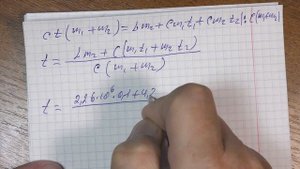 ct(m₁+m₂) = Lm₂ + cm₁t₁ + cm₂t₂ |: c(m₁+m₂)
t = Lm₂ + c(m₁t₁ + m₂t₂) / c(m₁+m₂)
t = 2,26·10⁶·0,1+4,2